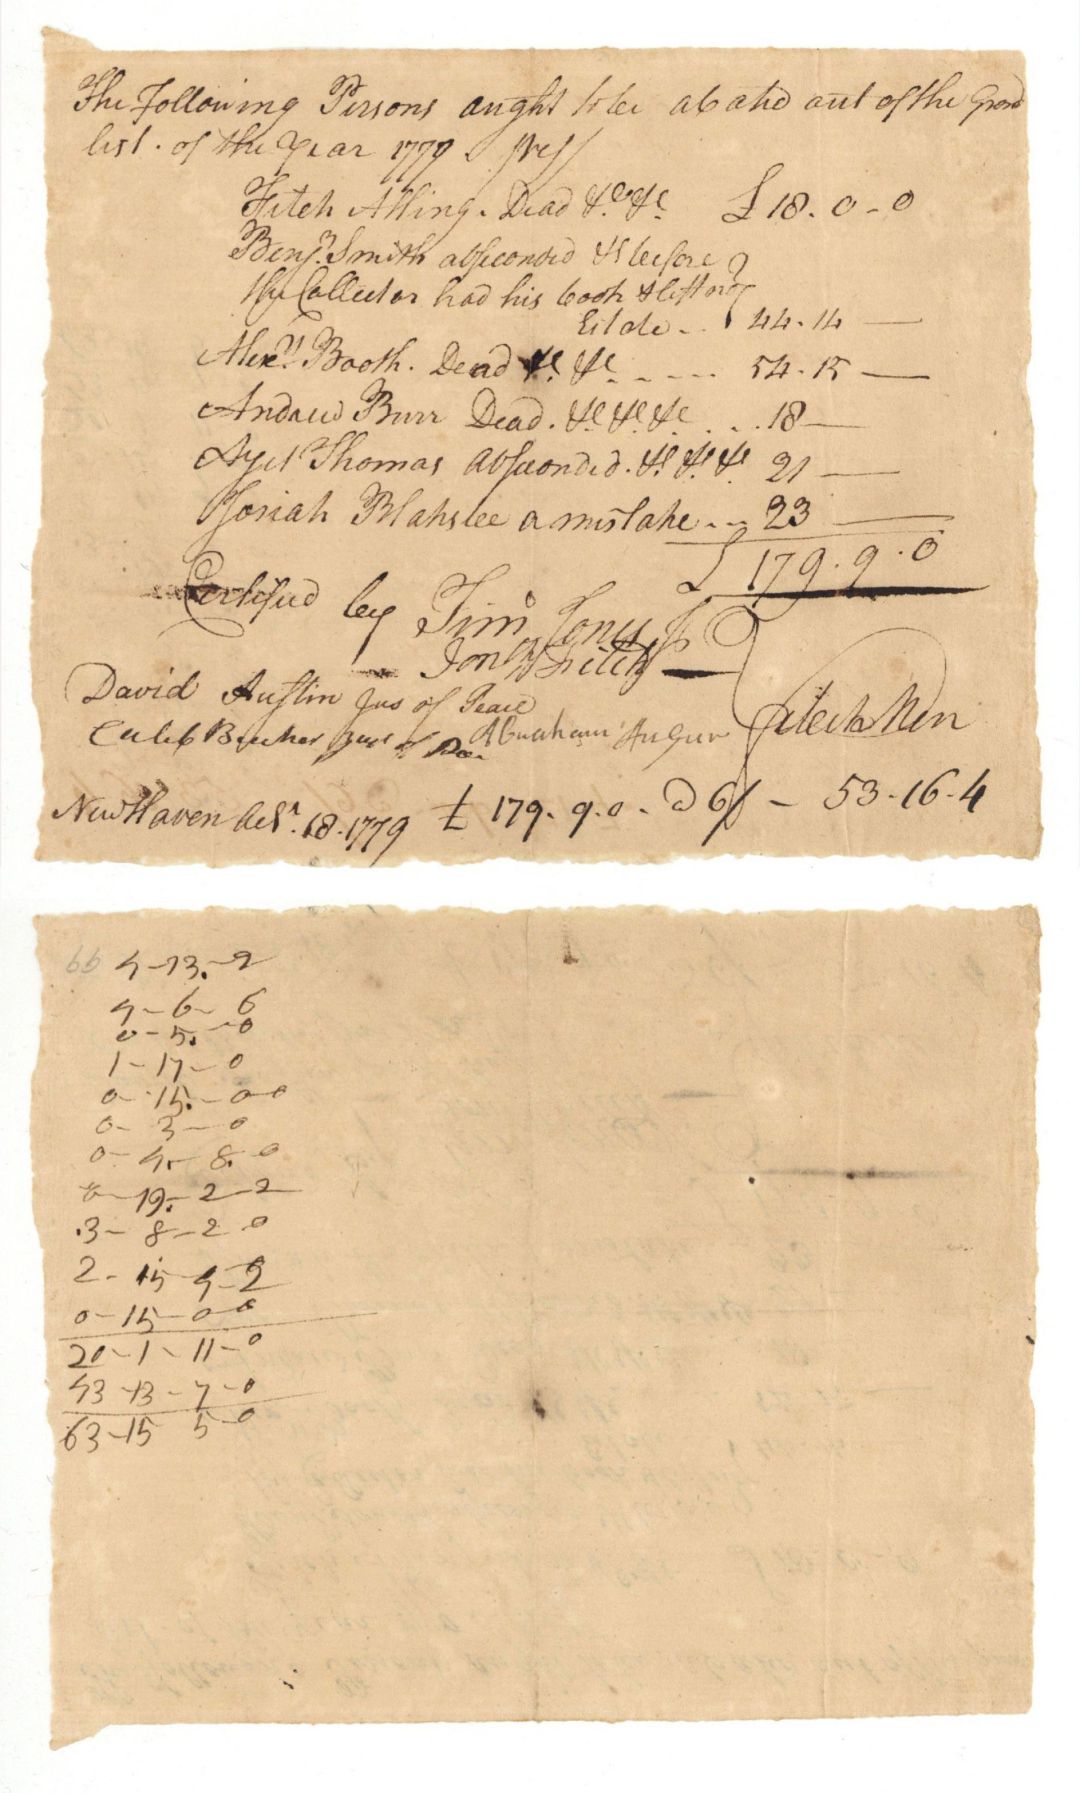 The Following Persons aught to be abated out of the Grand
list. of the Year 1779.
Fitch Alling. Dead &c &c £ 18. 0 - 0
Benjn. Smith absconded &c before
the Collector had his book & left no
Estate - . 44 - 14 —
Alexr. Booth. Dead &c. &c - - - - - 54 - 15 —
Andrew Burr Dead. &c. &c. &c . . . 18 —
Thomas absconded. &c &c &c 21 —
Josiah Blakslee a mistake - - - 23 —
£ 179 . 9 . 0
Certified by Timo Jones Jr
Jonth Fitch
David Austin Jus of Peace Selectmen
Caleb Beecher Jus of Do. Abraham Augur
New Haven 18. 1779 £ 179 . 9 . 0 - @ 6/ - 53 - 16 - 4
66 4 - 13. - 2
4 - 6 - 6
0 - 5. - 0
1 - 17 - 0
0 - 15. - 00
0 - 3 - 0
0 - 4. - 8. - 0
0 - 19. - 2 - 2
.3 - 8 - 2 - 0
2 - 15 - 4 - 2
0 - 15 - 0 0
20 - 1 - 11 - 0
43 - 13 - 7 - 0
63 - 15 5 - 0